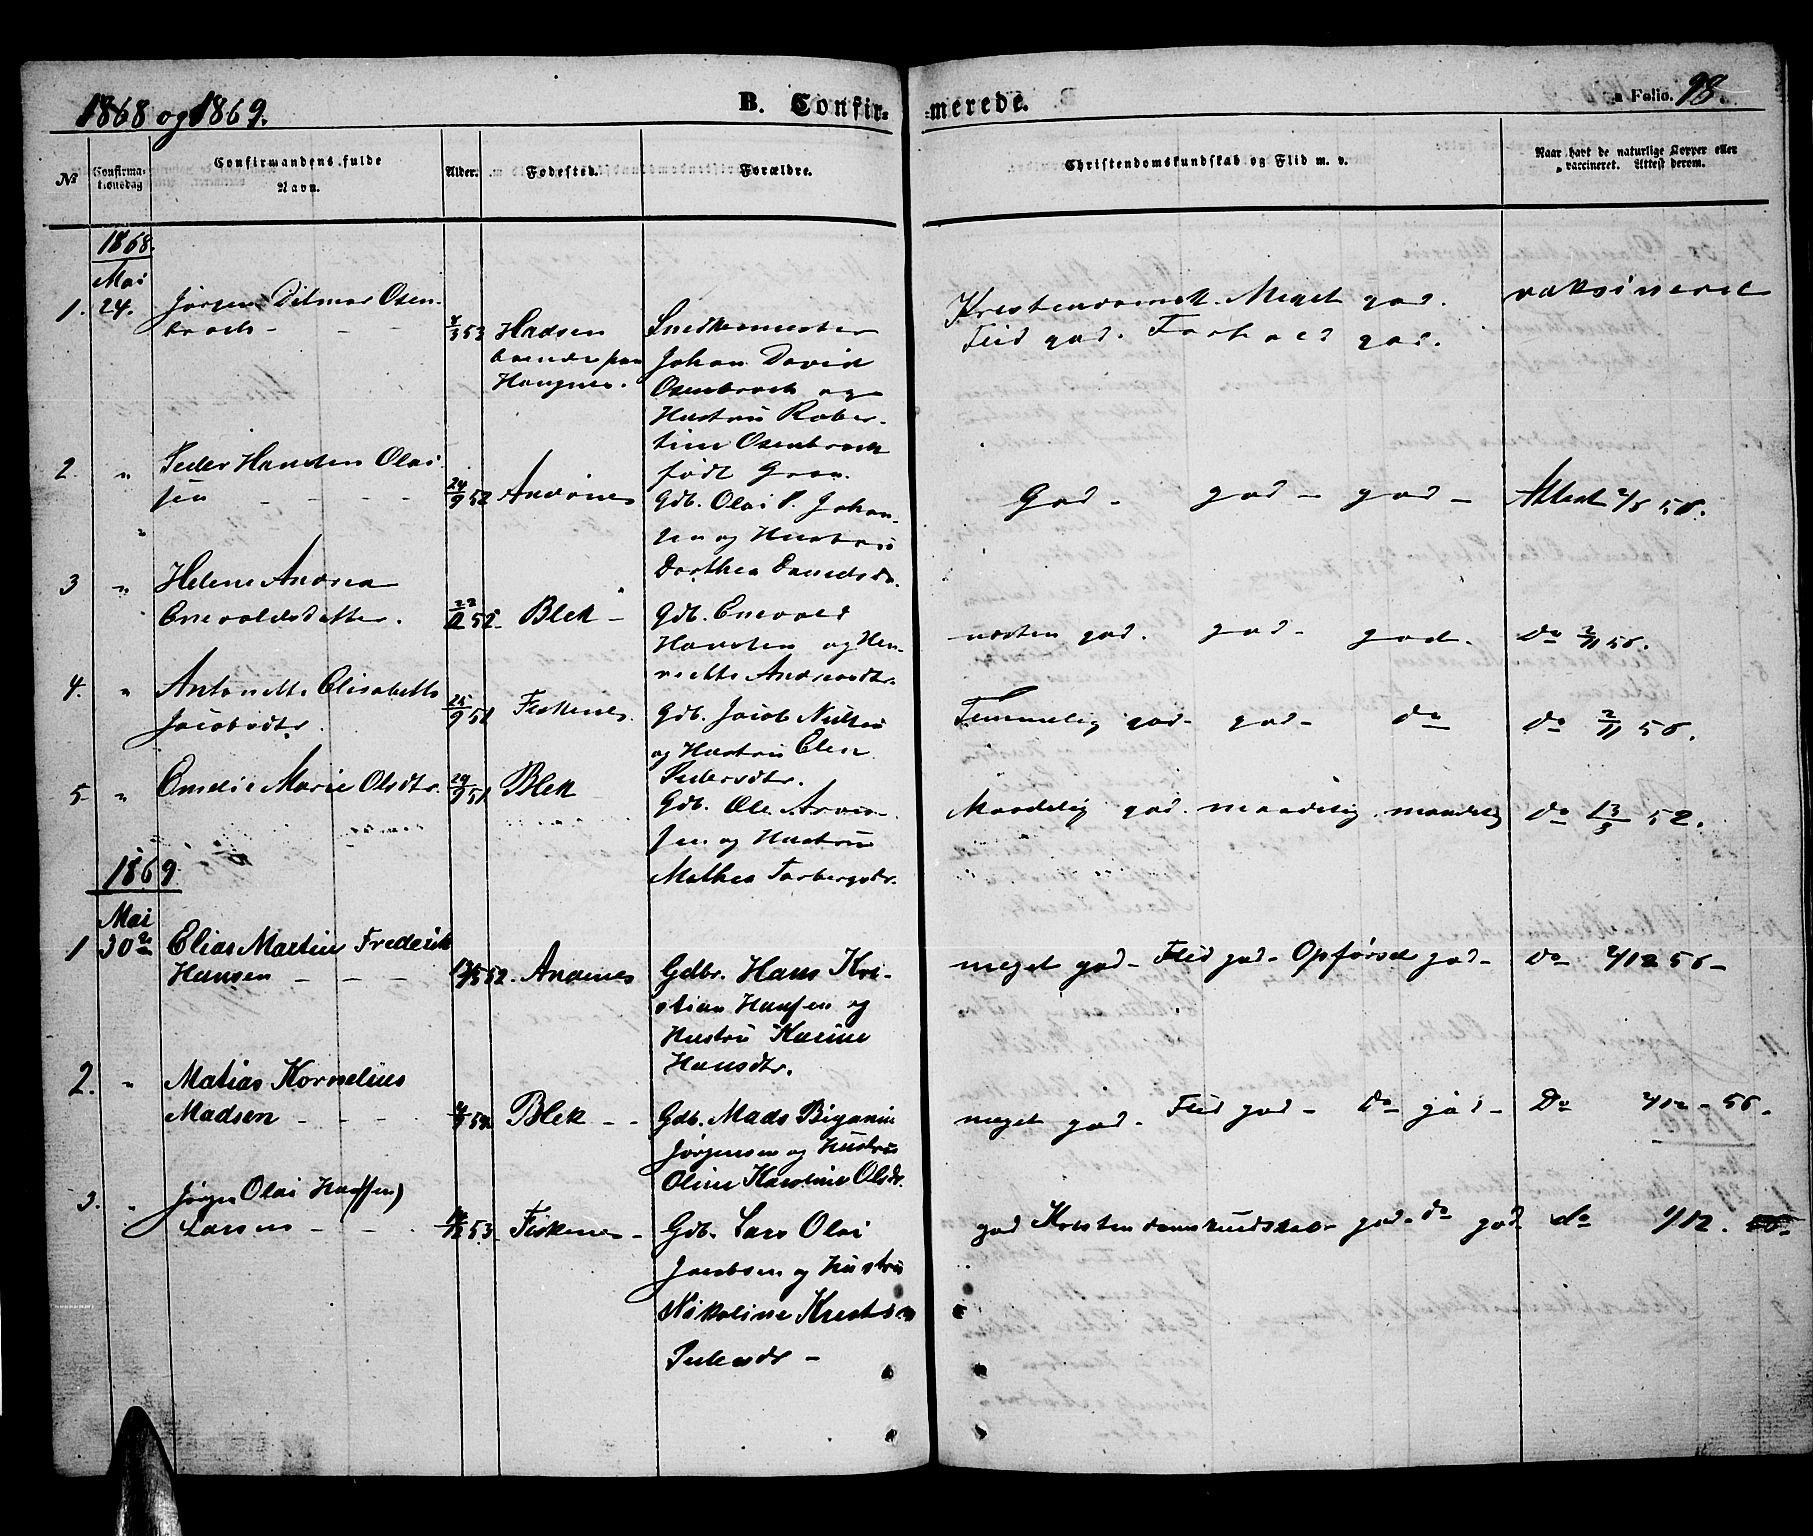 1868 og 1869.
B. Confir-
-merede.
Folio. 98.
No
Confirma-
tionsdag
Confirmandens fulde
Navn.
Alder.
Fødested.
Forældre.
Christendomskundskab og Flid m. v.
Naar havt de naturlige Kopper eller
vaccineret. Attest derom.
1868.
Mai
1. 24. Jørgen Ditmar Osen-
broch - - -
4/3 53 Hadsen
boende paa
Haugnes.
Snedkermester
Johan David
Osenbroch og
Hustru Rober-
tine Osenbroch
født Gran.
Kristendomsk. Meget god.
Flid god. Forhold god.
vaksineret
2. " Peder Hansten Olai
sen - - - -
24/9 52 Andenes
Gdb. Olai P. Johan-
sen og Hustru
Dorthea Danielsdr.
God - god - god -
Attest
3 " Helene Andrea
Enevoldsdatter.
52 Blek -
Gdb. Enevold
Hansten og Hen-
riette Andreasdtr.
næsten god. god - god.
Do 2/11 56.
4. " Antonette Elisabeth
Jacobsdtr.
Fiskenes.
Gdb. Jacob Nilsen
og Hustru Elen
Pedersdtr.
Temmelig god - god - do
do 2/11 56.
5 " Emelie Marie Olsdtr.
29/9 51 Blek
Gdb. Ole Aron-
sen og Hustru
Mathea Torbergsdr.
Maadelig god. maadelig maadelig
do 13/3 52.
1869.
Mai
1 30te Elias Martin Frederik
Hansen - - -
52. Andenes
Gdbr. Hans Kri-
stian Hansen og
Hustru Karine
Hansdtr.
meget god - Flid god - Opførsel god -
Do 2/12 56 -
2. " Matias Kornelius
Madsen - - -
54. Blek - -
Gdb. Mads Biganin
Jørgensen og Hustru
Oline Karoline Olsdr.
meget god. Flid god - Do god -
Do 2/12 - 56.
3. " Jørgen Olai Hansen)
Larsen - - -
53. Fiskenes -
Gdb. Lars Olai
Jacobsen og Hustru
Nikoline
Pedersdr -
god Kristendomskundskab god - do god
do 1/12.